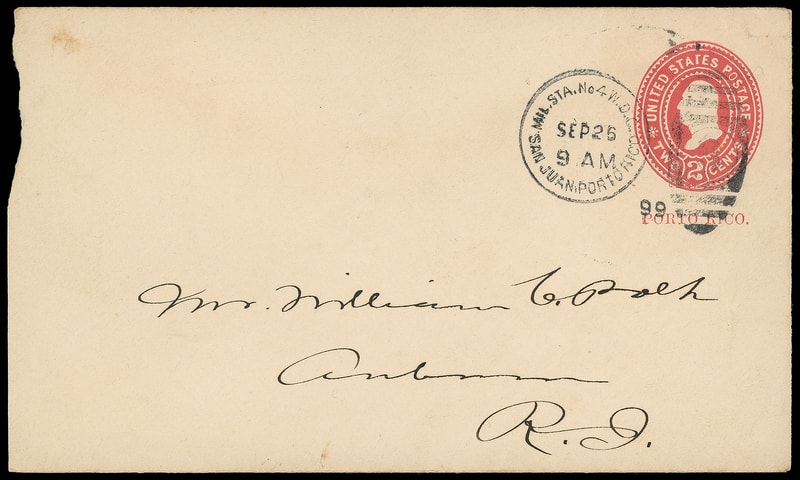 MIL. STA. No 4 W.D.C.
SEP 26
9 AM
SAN JUAN, PORTO RICO
UNITED STATES POSTAGE
TWO 2 CENTS
99
PORTO RICO.
Mr. William C. Polk
Auburn
R.I.